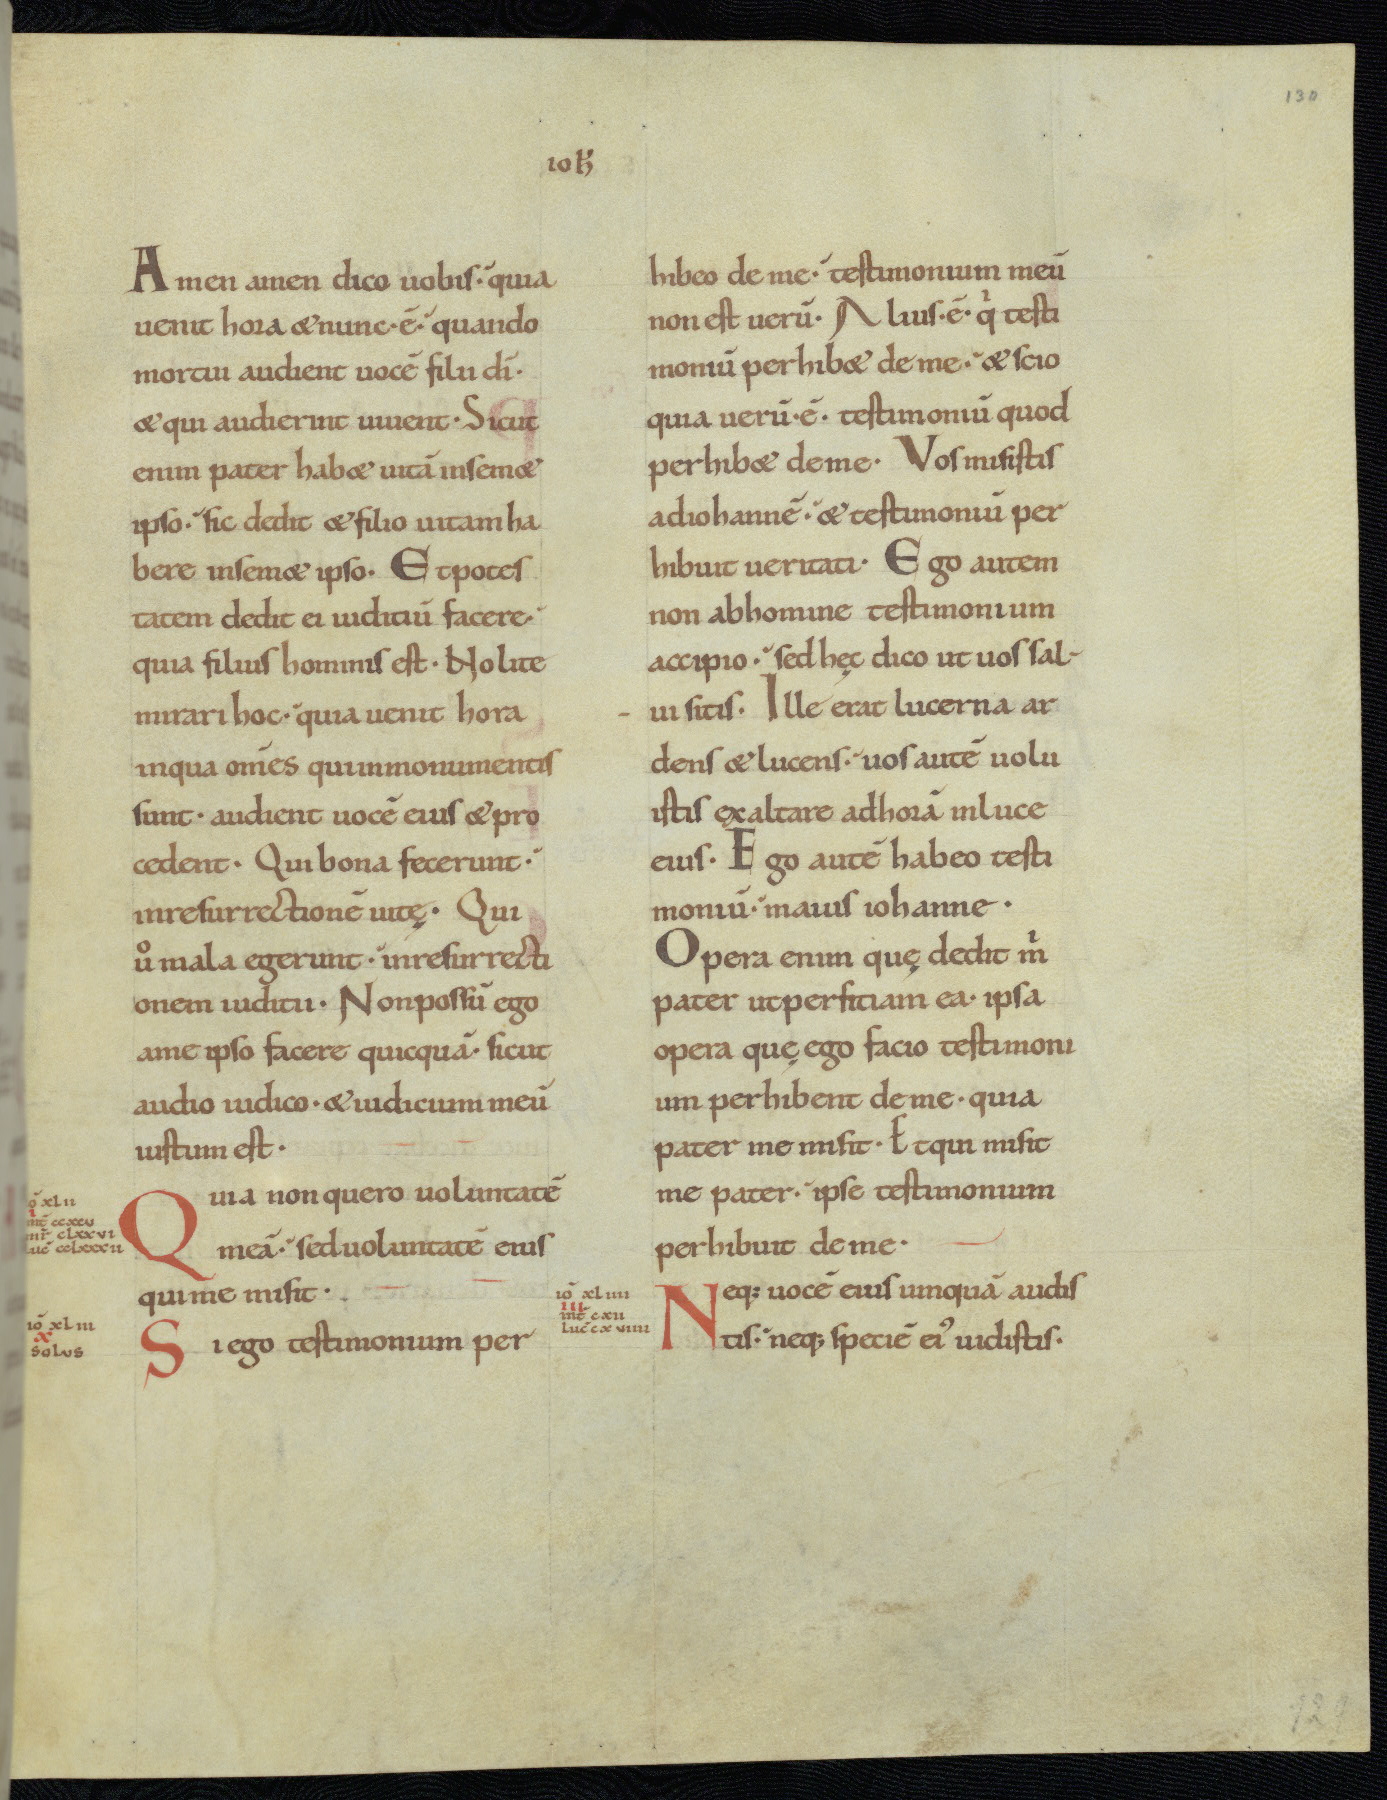 130
ioħ
Amen amen dico uobis· quia
uenit hora & nunc· ē· quando
mortui audient uocē filii dī·
& qui audierint uiuent· Sicut
enim pater hab& uitā insem&
ipso· sic dedit & filio uitam ha
bere insem& ipso· Et potes
tatem dedit ei iuditiū facere·
quia filius hominis est· Nolite
mirari hoc· quia uenit hora
inqua om̄es qui inmonumentis
sunt· audient uocē eius & pro
cedent· Qui bona fecerunt·
inresurrectionē uitę· Qui
uͦ mala egerunt· inresurrecti
onem iuditii· Non possū ego
ame ipso facere quicquā· sicut
audio iudico· & iudicium meū
iustum est·
Quia non quero uoluntatē
meā· sed uoluntatē eius
qui me misit·
Si ego testimonium per
iō xlii
i
mt̄ ccxcu
mr̄ clxxui
luc̄ cclxxxii
iō xliii
x
solus
hibeo de me· testimonium meū
non est uerū· Alius· ē· qͥ testi
moniū perhib& de me· & scio
quia uerū· ē· testimoniū quod
perhib& de me· Vos misistis
adiohannē· & testimoniū per
hibuit ueritati· Ego autem
non abhomine testimonium
accipio· sed hęc dico ut uos sal-
- ui sitis· Ille erat lucerna ar
dens & lucens· uos autē uolu
istis exaltare adhorā inluce
eius· Ego autē habeo testi
moniū· maius iohanne·
Opera enim quę dedit mͥ
pater utperficiam ea· ipsa
opera quę ego facio testimoni
um perhibent de me· quia
pater me misit· Et qui misit
me pater· ipse testimonium
perhibuit de me·
Neq; uocē eius umquā audis
tis· neq; speciē ei᾽ uidistis·
iō xliiii
iii
mt̄ cxii
luc̄ cxuiiii
129